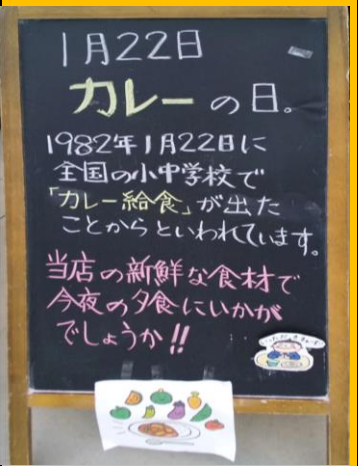 1月22日
カレーの日。
1982年1月22日に
全国の小中学校で
「カレー給食」が出た
ことからといわれています。
当店の新鮮な食材で
今夜の夕食にいかが
でしょうか!!